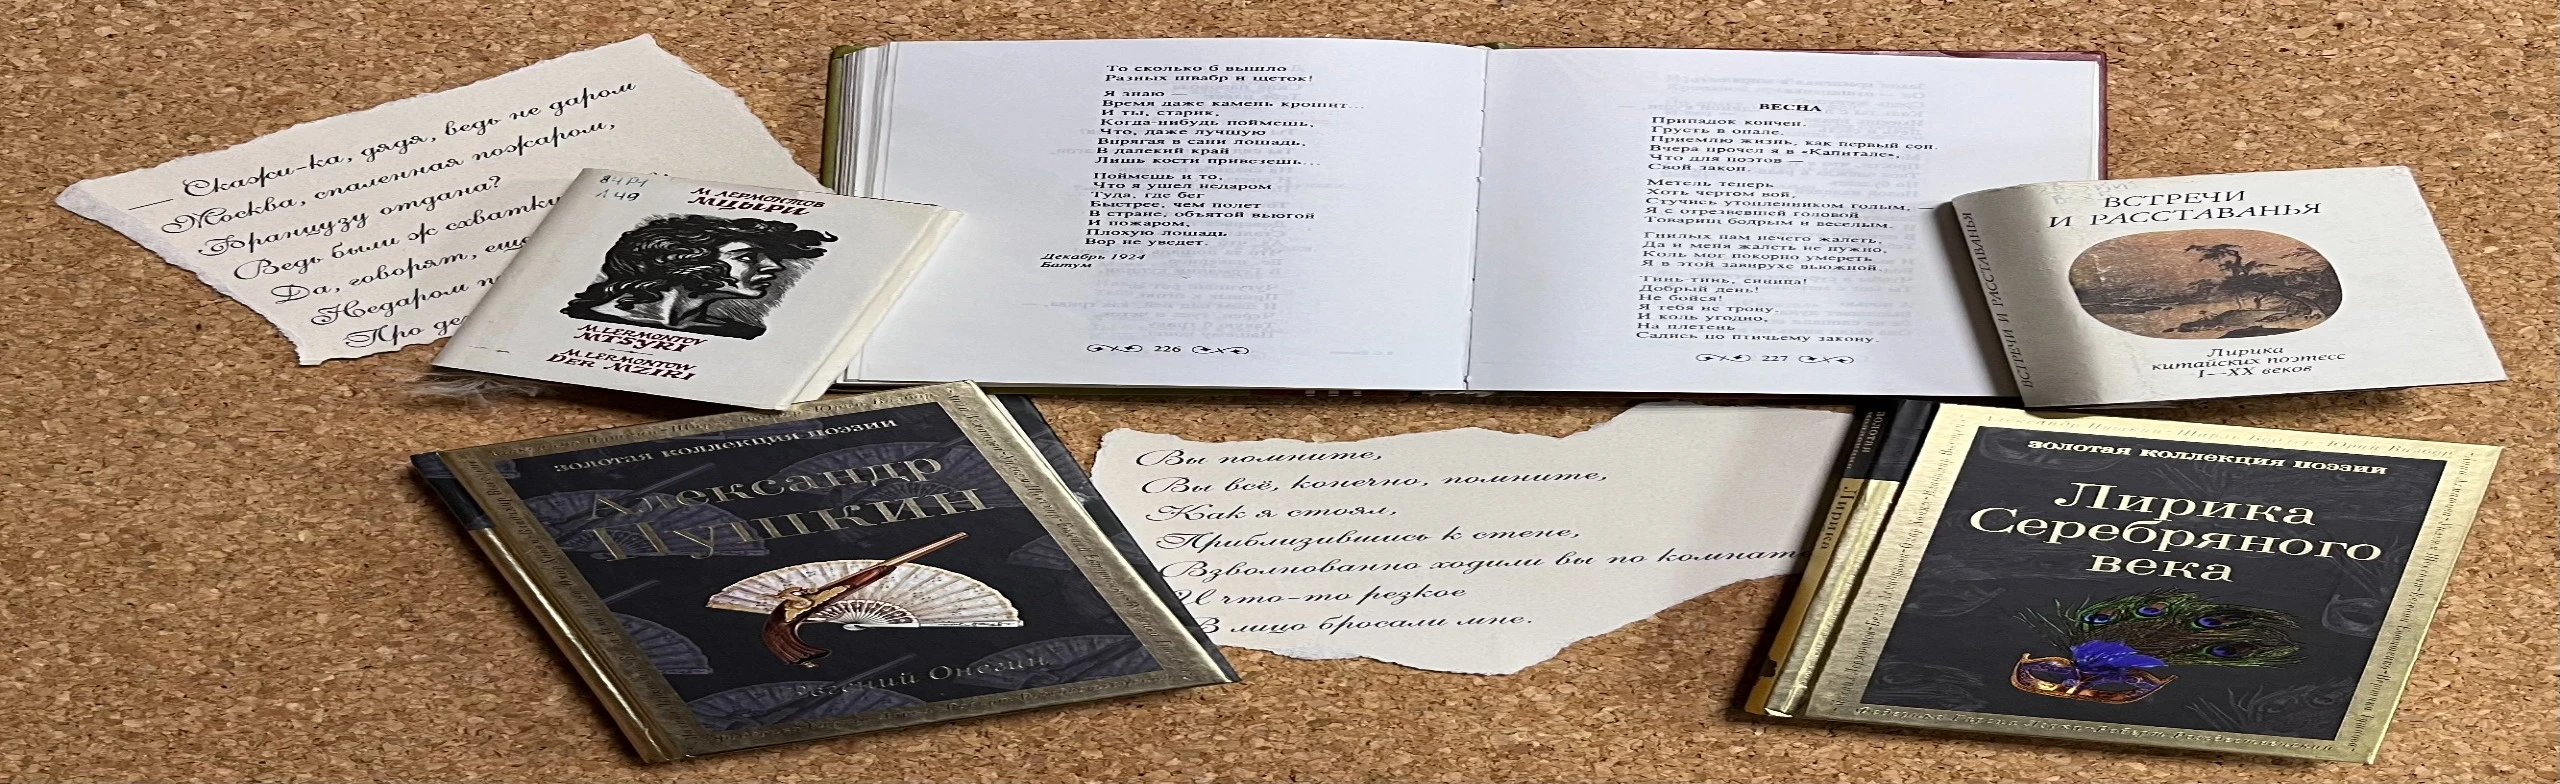 — Скажи-ка, дядя, ведь не даром
Москва, спаленная пожаром,
Французу отдана?
Ведь были ж схватки
Да, говорят, ещё
Недаром
Про
84Р1
Л 49
М. ЛЕРМОНТОВ
МЦЫРИ
M. LERMONTOV
MTSYRI
M. LERMONTOW
DER MZIRI
То сколько б вышло
Разных швабр и щеток!
Я знаю —
Время даже камень крошит...
И ты, старик,
Когда-нибудь поймешь,
Что, даже лучшую
Впрягая в сани лошадь,
В далекий край
Лишь кости привезешь...
Поймешь и то,
Что я ушел недаром
Туда, где бег
Быстрее, чем полет
В стране, объятой вьюгой
И пожаром,
Плохую лошадь
Вор не уведет.
Декабрь 1924
Батум
226
ВЕСНА
Припадок кончен.
Грусть в опале.
Приемлю жизнь, как первый сон.
Вчера прочел я в «Капитале»,
Что для поэтов —
Свой закон.
Метель теперь
Хоть чертом вой,
Стучись утопленником голым, —
Я с отрезвевшей головой
Товарищ бодрым и веселым.
Гнилых нам нечего жалеть,
Да и меня жалеть не нужно,
Коль мог покорно умереть
Я в этой завирухе вьюжной.
Тинь-тинь, синица!
Добрый день!
Не бойся!
Я тебя не трону.
И коль угодно,
На плетень
Садись по птичьему закону.
227
ВСТРЕЧИ И РАССТАВАНЬЯ
ВСТРЕЧИ
И РАССТАВАНЬЯ
Лирика
китайских поэтесс
I—XX веков
золотая коллекция поэзии
Александр
Пушкин
Евгений Онегин
Вы помните,
Вы всё, конечно, помните,
Как я стоял,
Приблизившись к стене,
Взволнованно ходили вы по комнате
И что-то резкое
В лицо бросали мне.
Лирика
золотая коллекция поэзии
Лирика
Серебряного
века